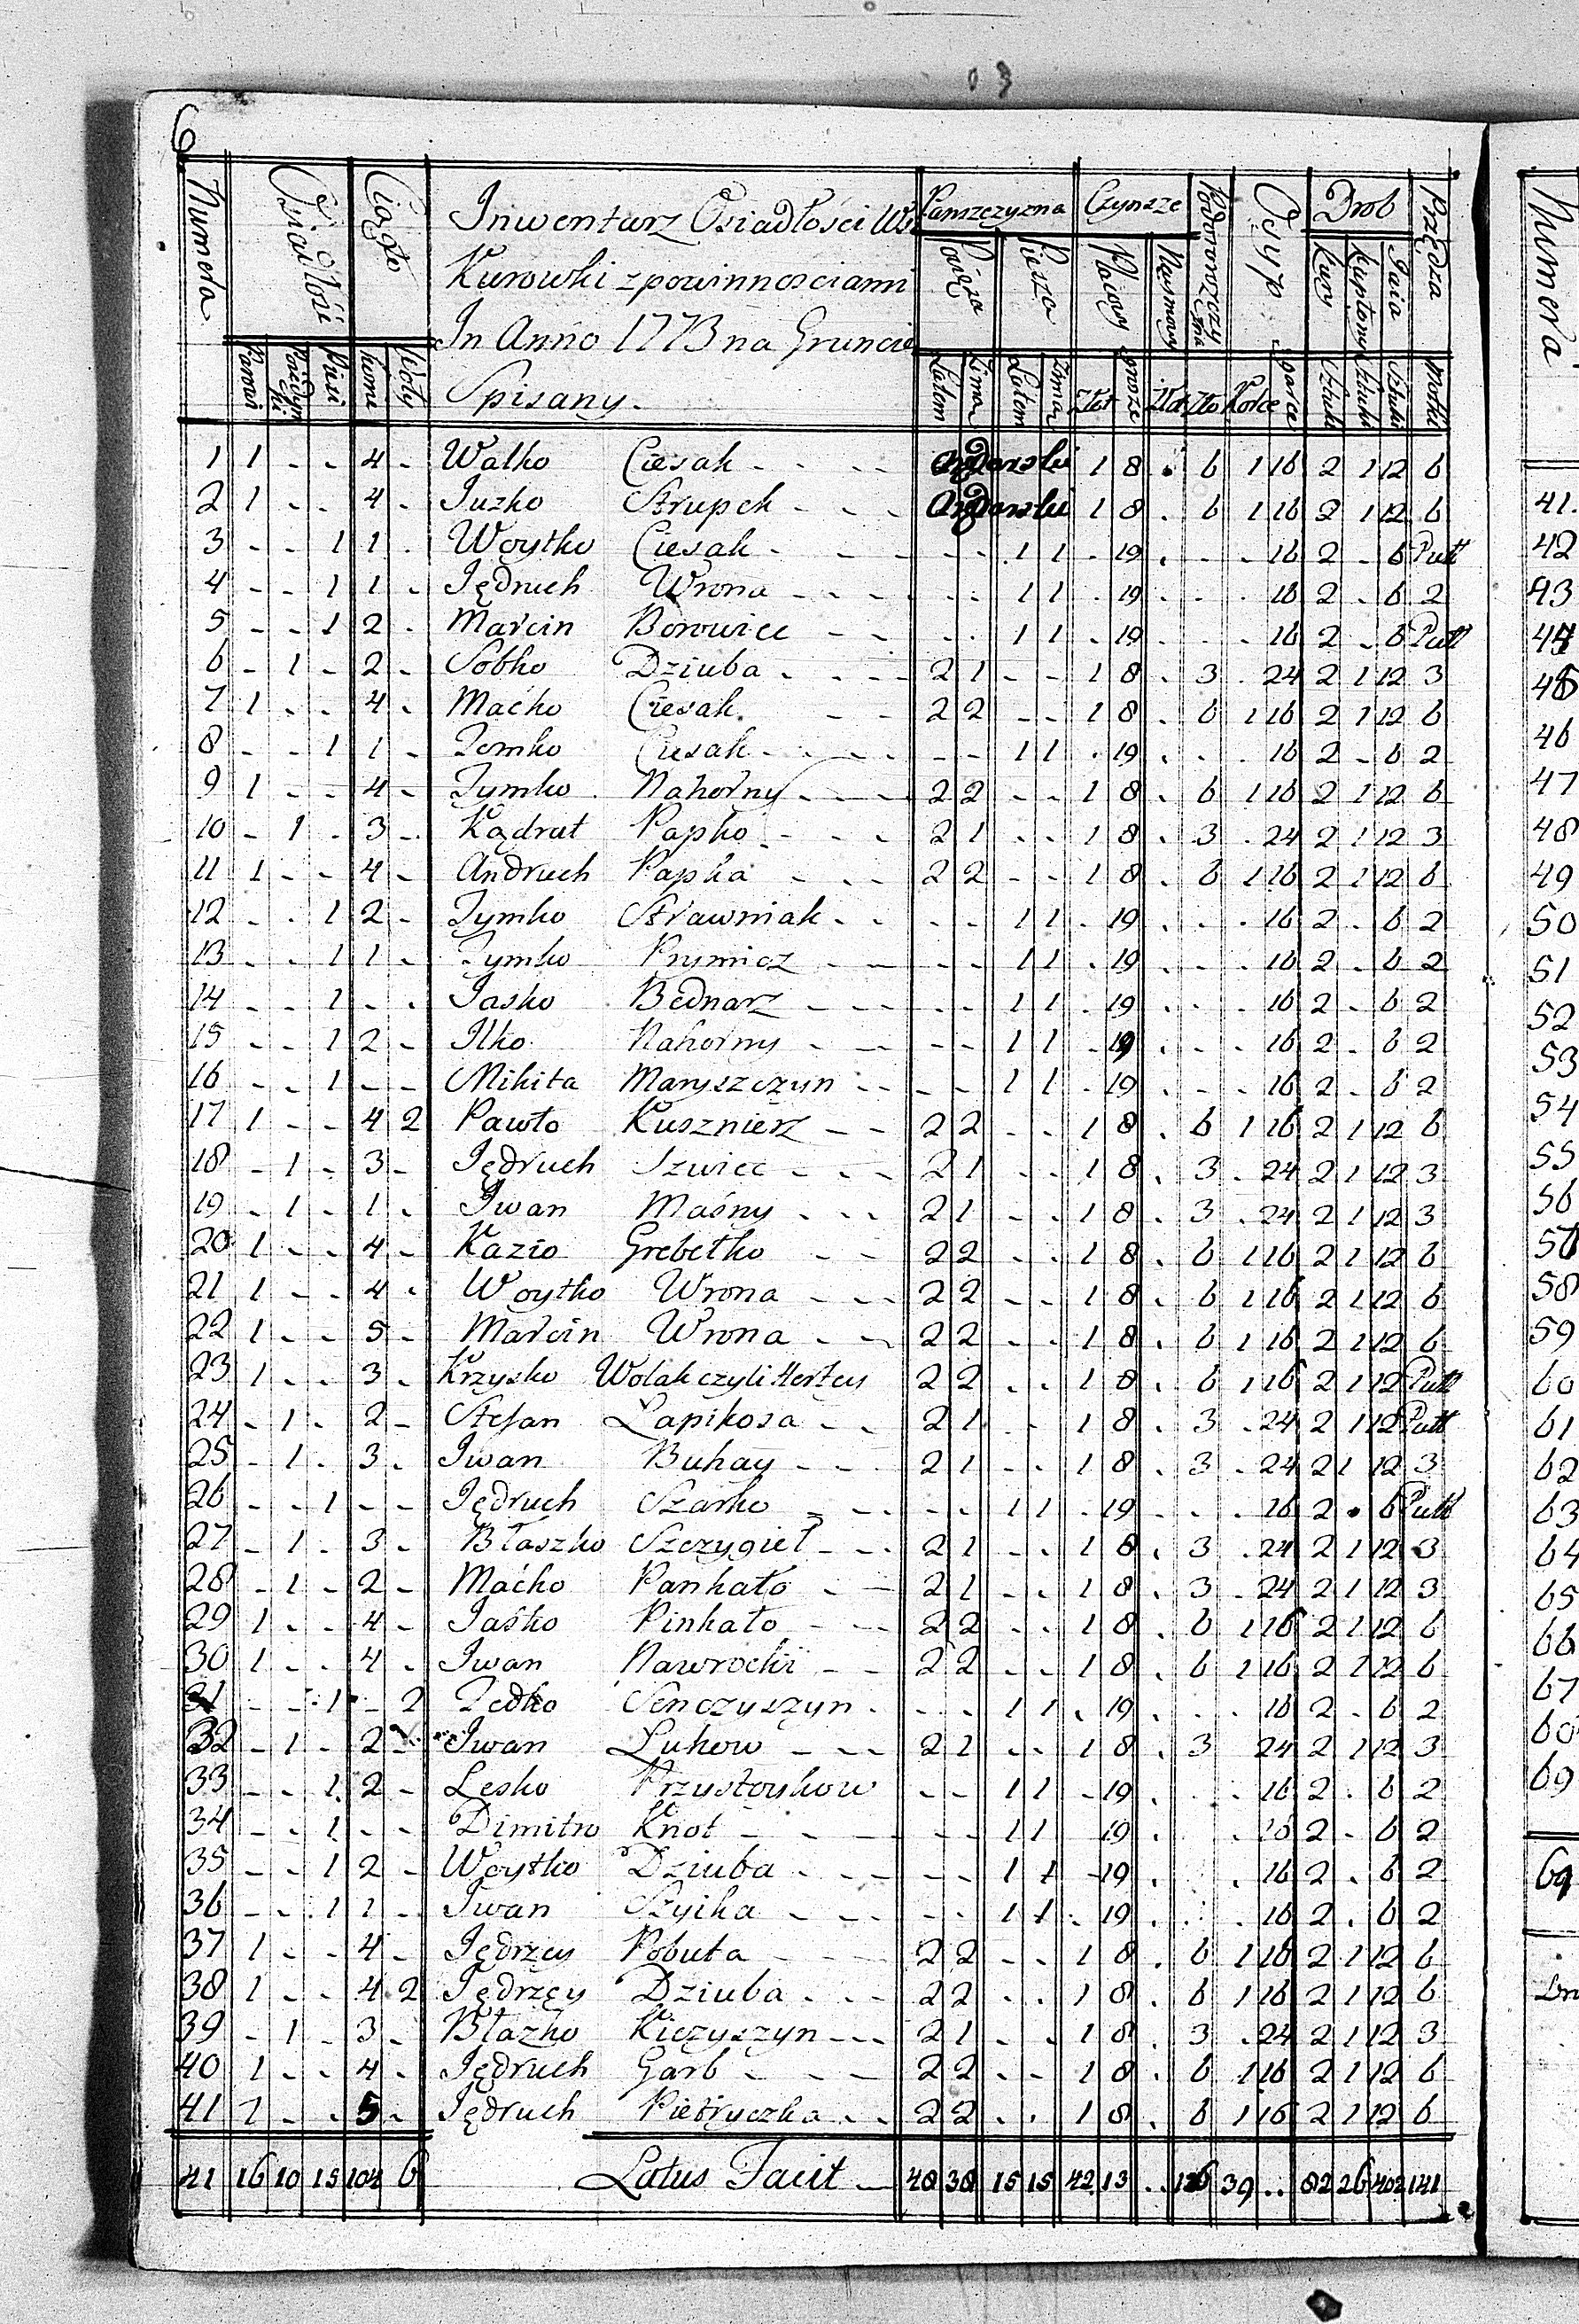 6
Numera
Osiadłość
Ciągło
Inwentarz Osiadłości Wsi
Kurowki z powinnosciami
In Anno 1773 na Gruncie
Spisany.
Panszczyzna Czynsze Osyp Drob Przędza
Ciągła Piesza Placowy Kury Kapłony Jaia
Parowi Poiedynki Pieśi konie Woły Latem Zima Latem Zima Złot grosze Złot Zło Korce garce Sztuki Sztuki Sztuki Motki
1 1 - - 4 - Walko Ciesak - - - - 1 8 . 6 1 16 2 1 12 6
2 1 - - 4 - Juzko Strupek - - - 1 8 . 6 1 16 2 1 12 6
3 - - 1 1 . Woytko Ciesak - - - - - 1 1 - 19 . - - 16 2 - 6 Putt
4 - - 1 1 - Jędruch Wrona - - - - - - 1 1 . 19 . - - 16 2 - 6 2
5 - - 1 2 . Marcin Borowiec - - - . 1 1 . 19 . - - 16 2 - 6 Putt
6 - 1 - 2 - Sobko Dziuba - - - - 2 1 - - 1 8 . 3 . 24 2 1 12 3
7 1 - - 4 - Maćko Ciesak - - 2 2 - - 1 8 . 6 1 16 2 1 12 6
8 - - 1 1 - Tomko Ciesak - - - - - 1 1 . 19 . - . 16 2 - 6 2
9 1 - - 4 - Tymko Nahorny - - - 2 2 - - 1 8 . 6 1 16 2 1 12 6
10 - 1 . 3 - Kądrat Papko - - - 2 1 - - 1 8 . 3 . 24 2 1 12 3
11 1 - - 4 - Andruch Papka - - - 2 2 - - 1 8 . 6 1 16 2 1 12 6
12 - . 1 2 - Tymko Strawniak - - - - 1 1 . 19 . - . 16 2 - 6 2
13 - - 1 1 - Tymko Prymicz - - - - 1 1 . 19 . - . 16 2 - 6 2
14 - - 1 - . Jasko Bednarz - - - - - 1 1 . 19 . - . 16 2 - 6 2
15 - - 1 2 - Ilko Nahorny - - - - - 1 1 - 19 . - . 16 2 - 6 2
16 - - 1 - - Mikita Maryszczyn - - - - 1 1 - 19 . - . 16 2 - 6 2
17 1 - - 4 2 Pawło Kusznierz - - 2 2 - - 1 8 . 6 1 16 2 1 12 6
18 - 1 - 3 - Jędruch Szwiec - - - 2 1 - - 1 8 . 3 . 24 2 1 12 3
19 - 1 - 1 - Iwan Maśny - - - 2 1 - - 1 8 . 3 . 24 2 1 12 3
20 1 - - 4 - Kazio Grebełko - - 2 2 - - 1 8 . 6 1 16 2 1 12 6
21 1 - - 4 - Woytko Wrona - - - 2 2 - - 1 8 . 6 1 16 2 1 12 6
22 1 - - 5 - Marcin Wrona - - 2 2 - - 1 8 . 6 1 16 2 1 12 6
23 1 - - 3 - Krzysko Wolak czyli 2 2 - - 1 8 . 6 1 16 2 1 12 Putt
24 - 1 - 2 - Stefan Łapikosa - - 2 1 - - 1 8 . 3 . 24 2 1 12 Putt
25 - 1 . 3 . Iwan Buhay - - - 2 1 - - 1 8 . 3 . 24 2 1 12 3
26 - - 1 - - Jędruch Szarko - - - - - 1 1 . 19 . - . 16 2 . 6 Putt
27 - 1 - 3 - Błaszko Szczygieł - - - 2 1 - - 1 8 . 3 . 24 2 1 12 3
28 - 1 - 2 - Maćko Pankało - - 2 1 - - 1 8 . 3 . 24 2 1 12 3
29 1 - - 4 - Jaśko Pinkało - - - 2 2 - - 1 8 . 6 1 16 2 1 12 6
30 1 - - 4 - Iwan Nawrocki - - 2 2 - - 1 8 . 6 1 16 2 1 12 6
31 - - 1 - 2 Fedko Senczyszyn - - - 1 1 . 19 . - . 16 2 - 6 2
32 - 1 - 2 Iwan Lukow - - - 2 1 - - 1 8 . 3 24 2 1 12 3
33 - - 1 2 - Lesko Przystoykow - - 1 1 - 19 . - . 16 2 . 6 2
34 - - 1 - - Dimitro Knot - - - - - 1 1 19 . . 16 2 - 6 2
35 - - 1 2 - Woytko Dziuba - - - - - 1 1 - 19 . . 16 2 . 6 2
36 - - 1 1 - Iwan Szyika - - - - - 1 1 . 19 . - . 16 2 . 6 2
37 1 - - 4 - Jędrzey Pobuta - - - 2 2 - - 1 8 . 6 1 16 2 1 12 6
38 1 - - 4 2 Jędrzęy Dziuba - - - 2 2 - - 1 8 . 6 1 16 2 1 12 6
39 - 1 - 3 - Błażko Kiczyszyn - - - 2 1 - - 1 8 . 3 . 24 2 1 12 3
40 1 - - 4 - Jędruch Garb - - - - 2 2 - - 1 8 . 6 1 16 2 1 12 6
41 1 - - 5 - Jędruch Pietryczka - - 2 2 . . 1 8 . 6 1 16 2 1 12 6
41 16 10 15 104 6 Latus Facit - 48 38 15 15 42 13 . . 126 39 . . 82 26 402 141
Numera
41.
42
43
44
45
46
47
48
49
50
51
52
53
54
55
56
57
58
59
60
61
62
63
64
65
66
67
68
69
69